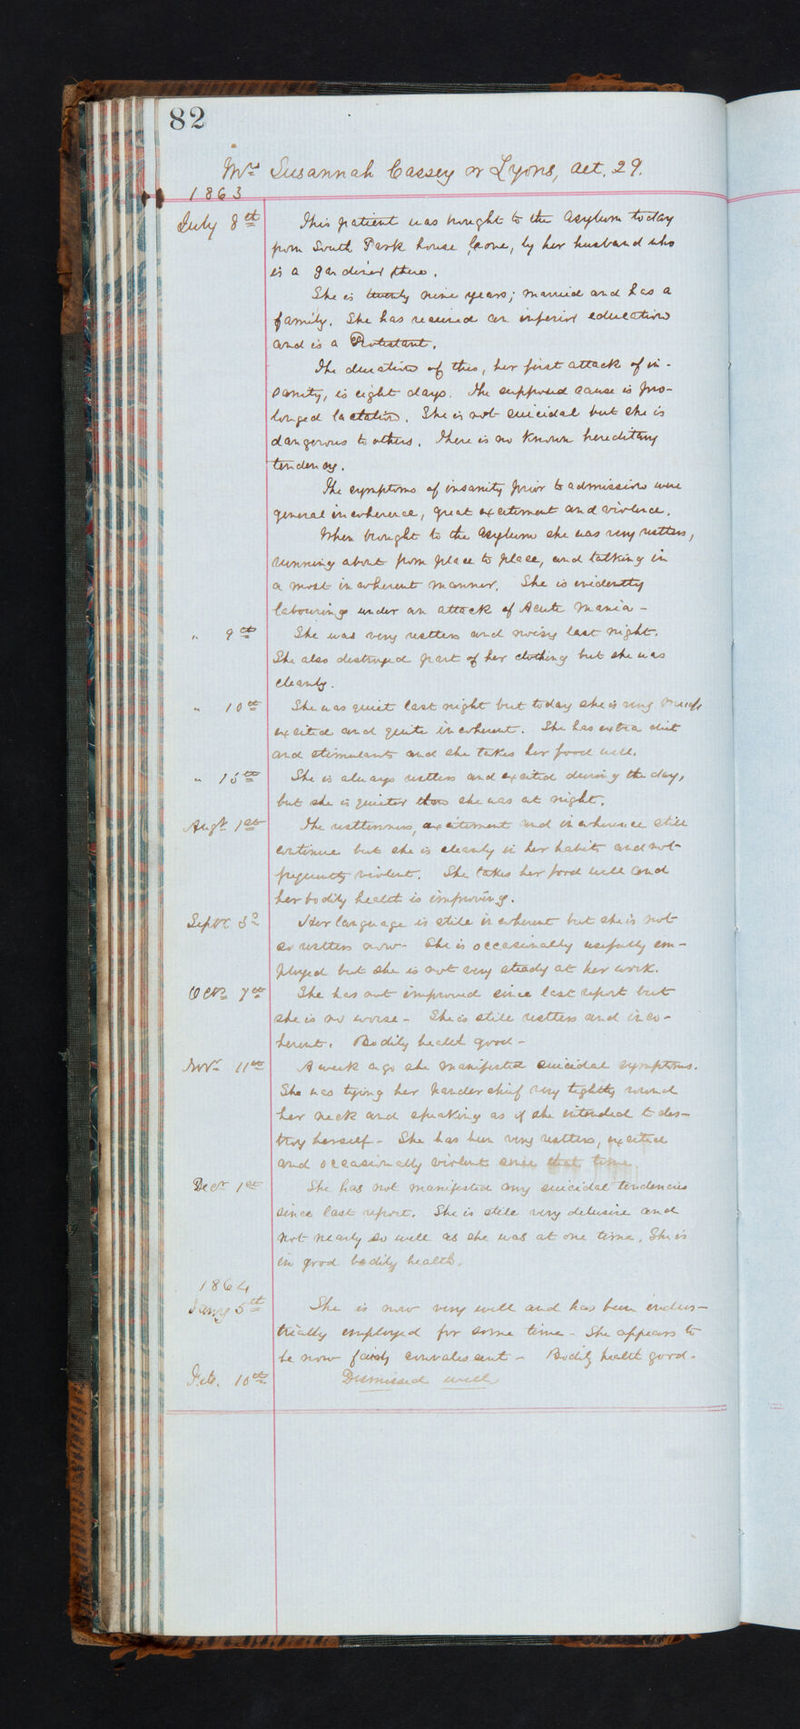 82
Mrs Susannah Cassey or Lyons, aet. 29.
1863
July 8th This patient was brought to the asylum today
from South Park house, by her husband who
is a gardiner there.
She is twenty nine years; married and has a
family. She has received an inferior education
and is a Protestant.
The duration of this, her first attack of in-
sanity, is eight days. The supposed cause is pro-
longed lactation. She is not suicidal but she is
dangerous to others. There is no known hereditary
tendency.
The symptoms of insanity prior to admission were
general incoherence, great excitement and violence.
When brought to the asylum she was very restless,
running about from place to place, and talking in
a most incoherent manner. She is evidently
labouring under an attack of Acute Mania -
" 9th She was very restless and noisy last night.
She also destroyed part of her clothing but she was
cleanly.
" 10th She was quiet last night but today she is very
excited and quite incoherent. She has extra diet
and stimulants and she takes her food well.
" 15th She is always restless and excited during the day,
but she is quieter than she was at night.
Augt 1st The restlessness, excitement and incoherence still
continue but she is cleanly in her habits and not
frequently violent. She takes her food well and
her bodily health is improving.
Septr 3d Her language is still incoherent but she is not
so restless now - She is occasionally usefully em-
ployed but she is not very steady at her work.
Octr 7th She has not improved since last report but
she is no worse - She is still restless and inco-
herent. Bodily health good -
Novr 11th A week ago she manifested suicidal symptoms.
She was tying her handerchief very tightly round
her neck and speaking as if she intended to des-
troy herself - She has been very restless, excited
and occasionally violent since that time
Decr 1st She has not manifested any suicidal tendencies
since last report. She is still very delusive and
not nearly so well as she was at one time. She is
in good bodily health.
1864
Jany 5th She is now very well and has been indus-
trially employed for some time - She appears to
be now fairly convalescent - Bodily health good.
Feb. 10th Dismissed well